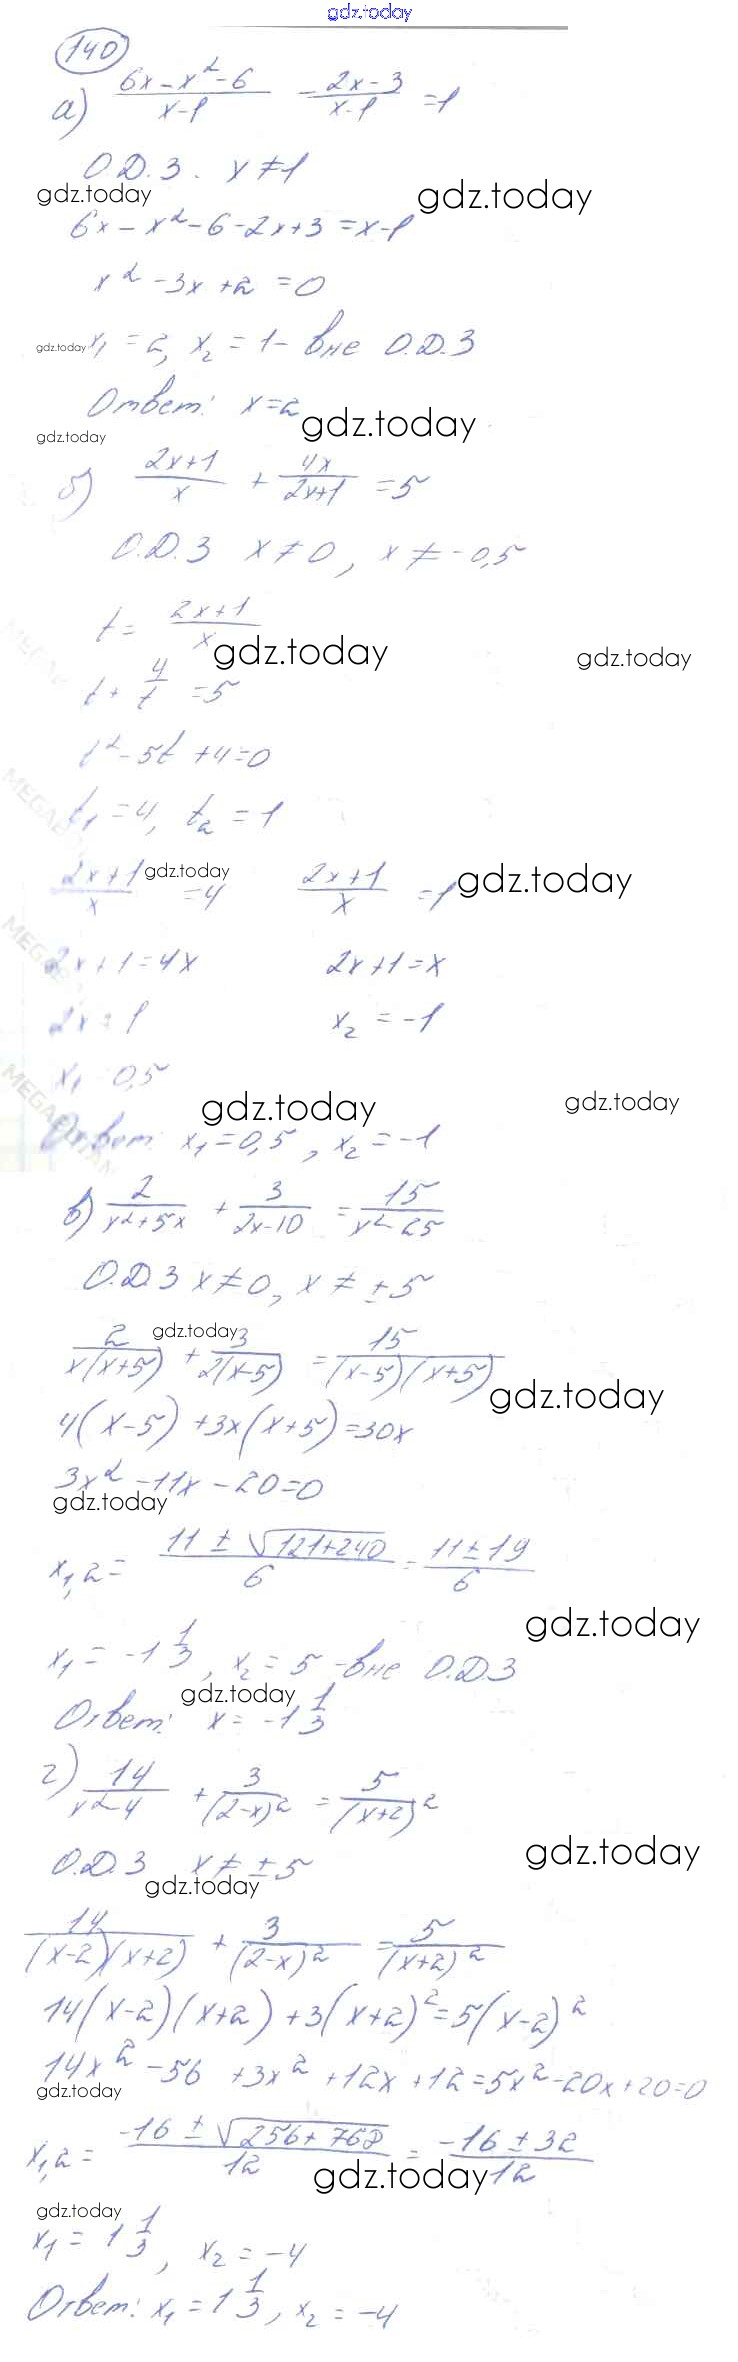 gdz.today
140
а) (6x-x²-6)/(x-1) - (2x-3)/(x-1) =1
О.Д.З. x≠1
gdz.today gdz.today
6x-x²-6-2x+3=x-1
x²-3x+2=0
gdz.today x₁=2, x₂=1- вне О.Д.З
Ответ: x=2
gdz.today gdz.today
б) (2x+1)/x + 4x/(2x+1) =5
О.Д.З x≠0, x≠-0,5
t= (2x+1)/x
gdz.today gdz.today
t+ 4/t =5
t²-5t+4=0
t₁=4, t₂=1
(2x+1)/x =4 (2x+1)/x =1
gdz.today gdz.today
2x+1=4x 2x+1=x
2x=1 x₂=-1
x₁ 0,5
gdz.today gdz.today
Ответ: x₁=0,5, x₂=-1
в) 2/(x²+5x) + 3/(2x-10) = 15/(x²-25)
О.Д.З x≠0, x≠±5
gdz.today
2/(x(x+5)) + 3/(2(x-5)) = 15/((x-5)(x+5))
gdz.today
4(x-5)+3x(x+5)=30x
3x²-11x-20=0
gdz.today
x₁,₂= (11±√(121+240))/6 = (11±19)/6
gdz.today
x₁=-1 1/3, x₂=5 -вне О.Д.З
gdz.today
Ответ: x=-1 1/3
г) 14/(x²-4) + 3/(2-x)² = 5/(x+2)²
gdz.today
О.Д.З x≠±5
gdz.today
14/((x-2)(x+2)) + 3/(2-x)² = 5/(x+2)²
14(x-2)(x+2)+3(x+2)²=5(x-2)²
14x²-56+3x²+12x+12=5x²-20x+20=0
gdz.today
x₁,₂= (-16±√(256+768))/12 = (-16±32)/12
gdz.today
gdz.today
x₁=1 1/3, x₂=-4
Ответ: x₁=1 1/3, x₂=-4